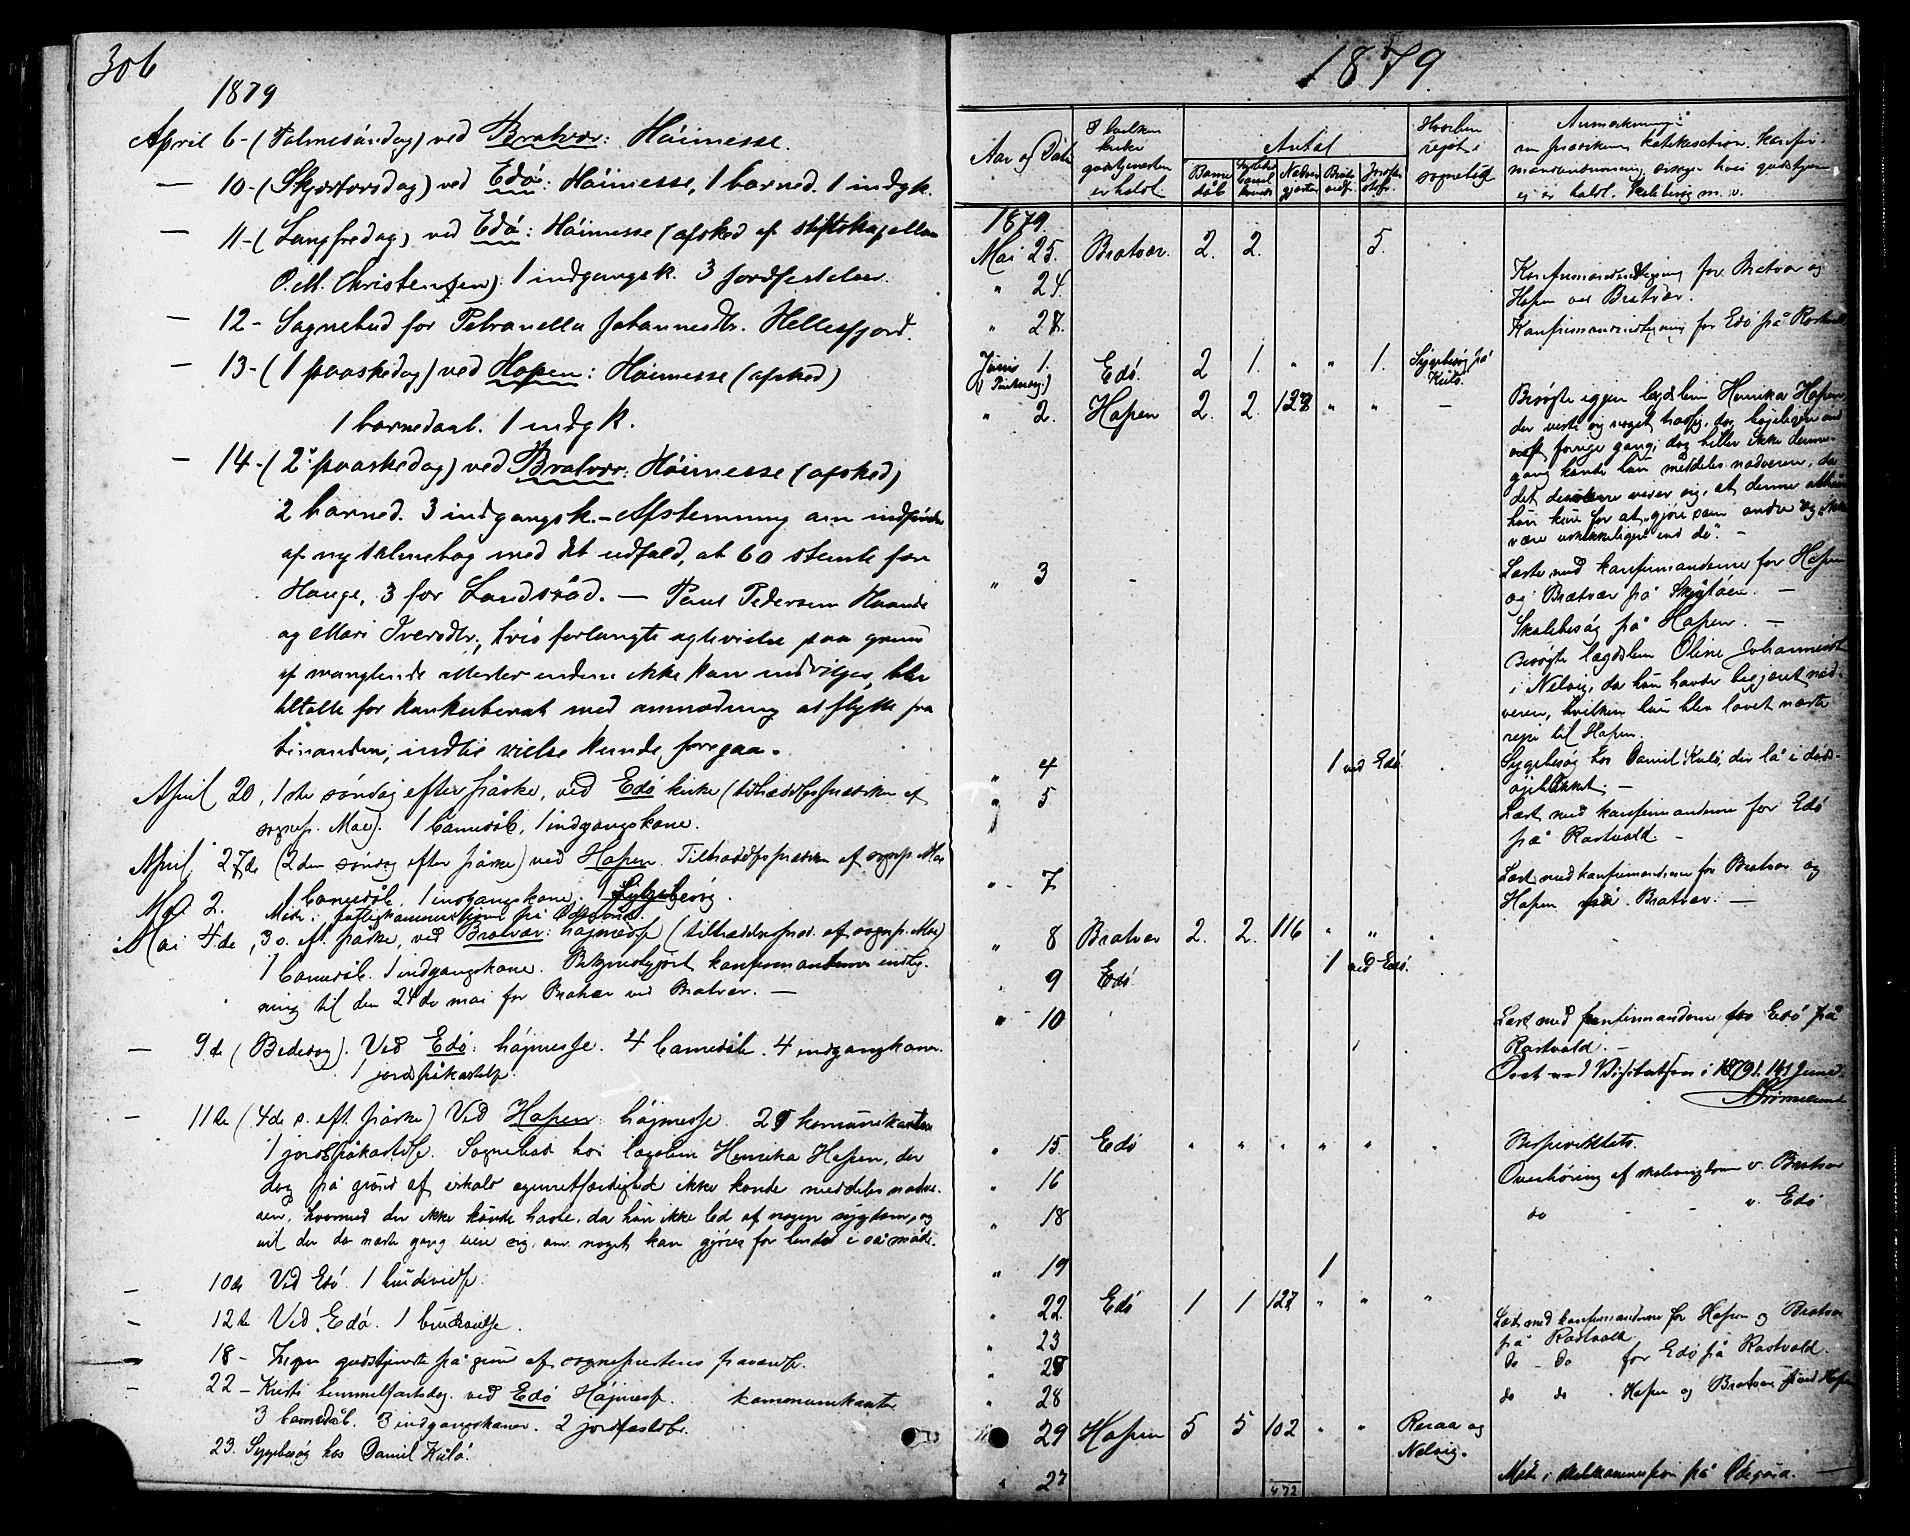 306
1879
April 6 - (Palmesöndag) ved Bratvær: Höimesse.
— 10 - (Skjærtorsdag) ved Edö: Höimesse, 1 barned. 1 indgk.
— 11 - (Langfredag) ved Edö: Höimesse (afsked af stiftskapellan
P. M. Christensen). 1 indgangsk. 3 jordfestelser.
— 12 - Sognebud for Petronella Johannesdtr. Hellesfjord.
— 13 - (1 paaskedag) ved Hopen: Höimesse (afsked)
1 barnedaab. 1 indgk.
— 14 - (2. paaskedag) ved Bratvær: Höimesse (afsked)
2 barned. 3 indgangsk. - Afstemning om indförelse
af ny salmebog med det udfald, at 60 stemte for
Hauge, 3 for Landstad. — Paul Pedersen
og Mari Iversdtr., hvis forlangte vielse paa grund
af manglende attester endnu ikke kan indvilges, blev
tiltalte for konkubinat med anmodning at flytte fra
hinanden, indtil vielse kunde foregaa.
April 20, 1ste søndag efter påske, ved Edö kirke (tiltrædelsespræken af
sognep. Moe). 1 barnedåb, 1 indgangskone.
April 27de (2den søndag efter påske) ved Hopen. Tiltrædelsespræken af sognep. Moe
1 barnedåb. 1 indgangskone. 1 Sygebesøg.
Mai 2. Møde i fattigkommissionen på Ödegård.
Mai 4de, 3 s. eft. påske, ved Bratvær: højmesse (tiltrædelsespræd. af sognep. Moe)
1 barnedåb. 1 indgangskone. Bekjendtgjort konfirmanternes indteg-
ning til den 24de mai for Bratvær ved Bratvær. —
— 9de (Bededag). Ved Edö: højmesse. 4 barnedåb. 4 indgangskoner.
1 jordpåkastelse.
— 11te (4de s. eft. påske) Ved Hopen: højmesse. 25 kommunikanter
1 jordpåkastelse. Sognebud hos lægdslem Henrika Hopen, der
dog på grund af egenretfærdighed ikke kunde meddeles nadve-
ren, hvormed der ikke kunde haste, da hun ikke led af nogen sygdom, og
vil der da næste gang vise sig, om noget kan gjøres for hende i så måde.
— 10de Ved Edö. 1 brudevielse.
— 12te Ved Edö. 1 brudevielse.
— 18 - Ingen gudstjeneste på grund af sogneprestens fravær.
— 22 - Kristi himmelfartsdag ved Edö Højmesse. kommunikanter
3 barnedåb. 3 indgangskoner. 2 jordfæstelse.
23. Sygebesøg hos Daniel Kulö.
1879.
Aar og Dato | I hvilken kirke gudstjenesten er holdt | Antal | Hvorhen rejst i sognebud | Anmærkning:
Barne dåb | | Nadver gjæster | Brude | Jordfæstelse
1879
Mai 25. Bratvær. 2. 2. 5.
" 24. Konfirmandindtegning for Bratvær og
Hopen ved Bratvær.
" 28. Konfirmandindtegning for Edö på Rostvold
Juni 1. (1 Pintsedag.) Edö. 2 1. " " 1. Sygebesøg på Kulö.
" 2. Hopen 2. 2. 127 " " - Besøgte igjen lægdslem Henrika Hopen,
der viste sig noget
forrige gang; dog heller ikke denne
gang kunde hun meddeles nadveren, da
det viser sig, at denne
hun kun for at "gjöre som andre og ikke
være uskikkeligere end de". —
" 3 - Læste med konfirmanderne for Hopen
og Bratvær på —
Skolebesøg på Hopen. —
Besøgte lægdslem Oline Johannesdtr
i Nelvig, da hun havde begjæret nad-
veren, hvilken hun blev lovet næste
rejse til Hopen.
" 4 1 ved Edö. Sygebesøg hos Daniel Kulö, der lå i døds-
øjeblikket. —
" 5 Læst med konfirmanderne for Edö
på Rostvold. —
" 7 Læst med konfirmanderne for Bratvær og
Hopen på Bratvær. —
" 8 Bratvær 2. 2. 116 " "
" 9 Edö. 1 ved Edö.
" 10 Læst med konfirmanderne for Edö på
Rostvold. —
Seet ved Visitatsen i 1879 d. 14 Juni.
" 15 Edö " " " " " Bispevisitats.
" 16 Overhöring af skoleungdommen v. Bratvær
" 18 do - - v. Edö
" 19 1
" 22 Edö 1 1 127 " " "
" 23 Læst med konfirmanderne for Hopen og Bratvær
på Rostvold
" 28 do - do for Edö på Rostvold.
" 28 do do Hopen og Bratvær ved Hopen
" 29 Hopen 5 5 102 " " Reraa og Nelvig.
" 27 Møde i skolekommission på Ödegård. —
472